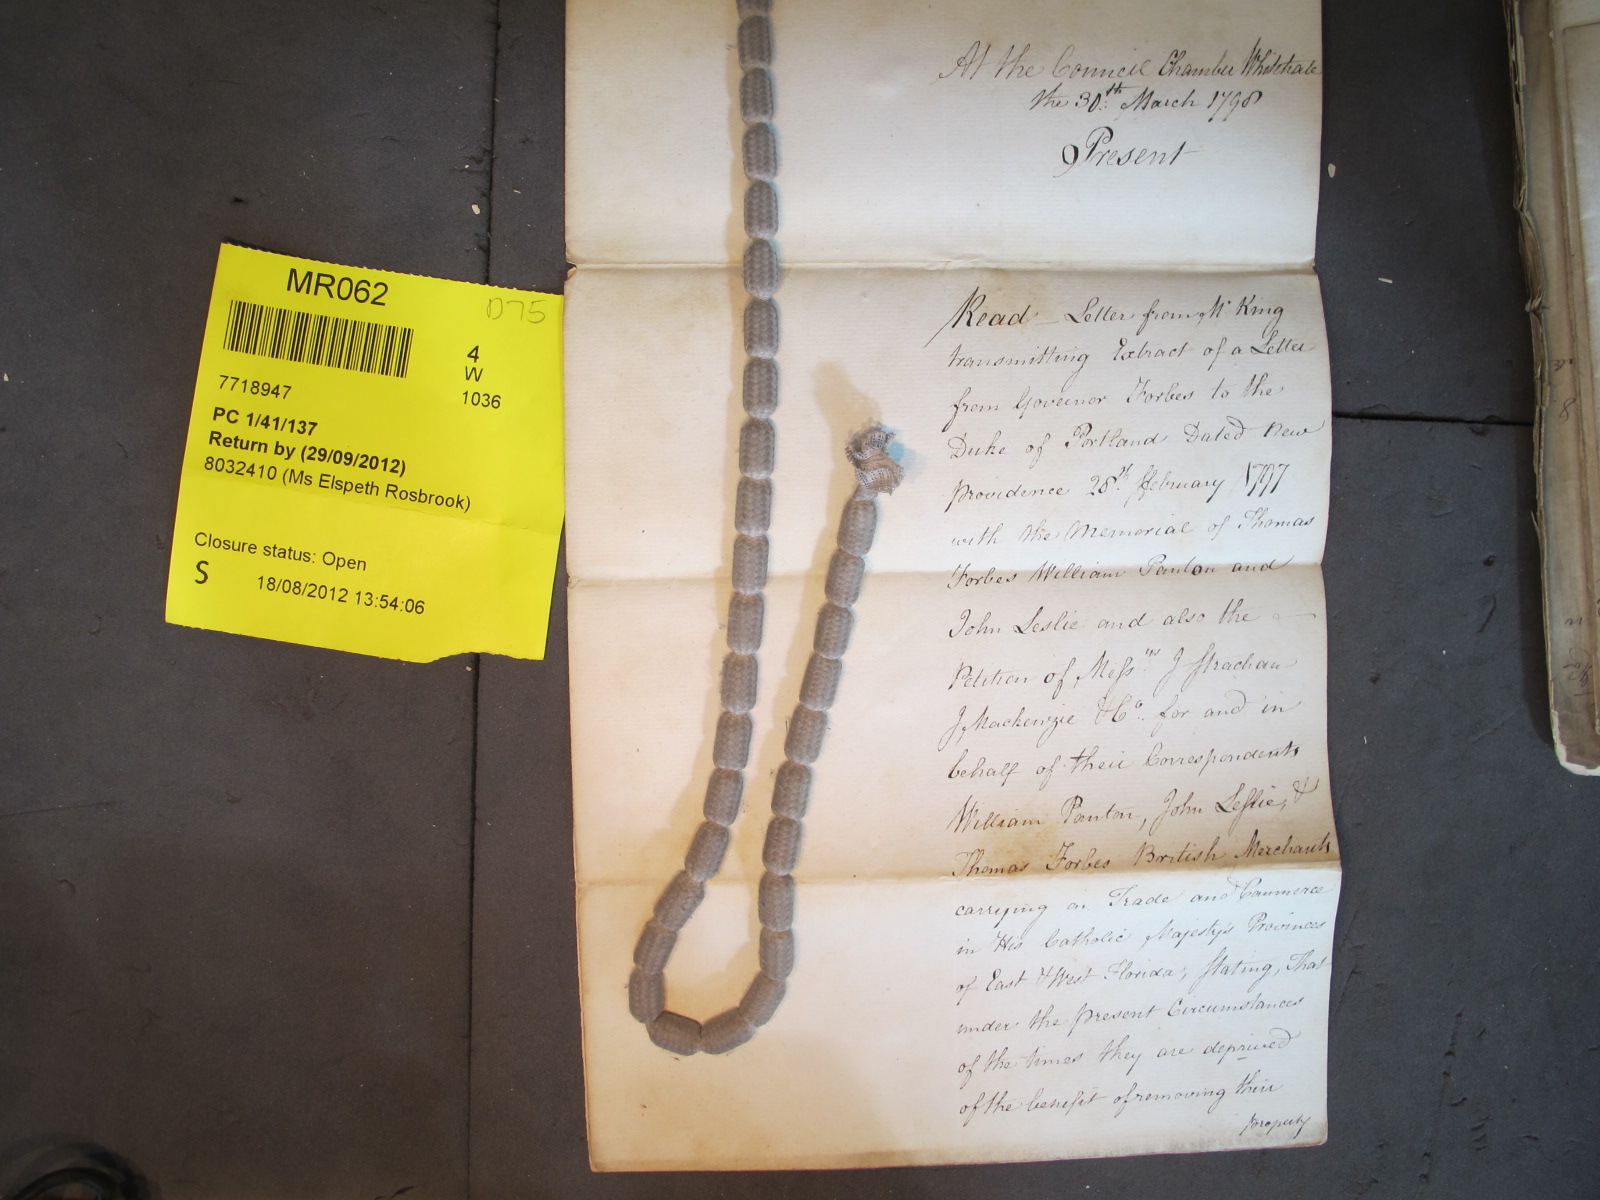 MR062
D75
4
W
1036
7718947
PC 1/41/137
Return by (29/09/2012)
8032410 (Ms Elspeth Rosbrook)
Closure status: Open
S
18/08/2012 13:54:06
At the Council Chamber Whitehall
the 30th March 1798
Present
Read – Letter from Mr King
transmitting Extract of a Letter
from Governor Forbes to the
Duke of Portland Dated New
Providence 28th ffebruary 1797
with the Memorial of Thomas
Forbes William Panton and
John Leslie and also the
Petition of Messrs J Strachan
J Mackenzie & Co. for and in
behalf of their Correspondents
William Panton, John Leslie, &
Thomas Forbes British Merchants
carrying on Trade and Commerce
in His Catholic Majestys Provinces
of East & West Florida, Stating, That
under the present Circumstances
of the times they are deprived
of the benefit of removing their
property